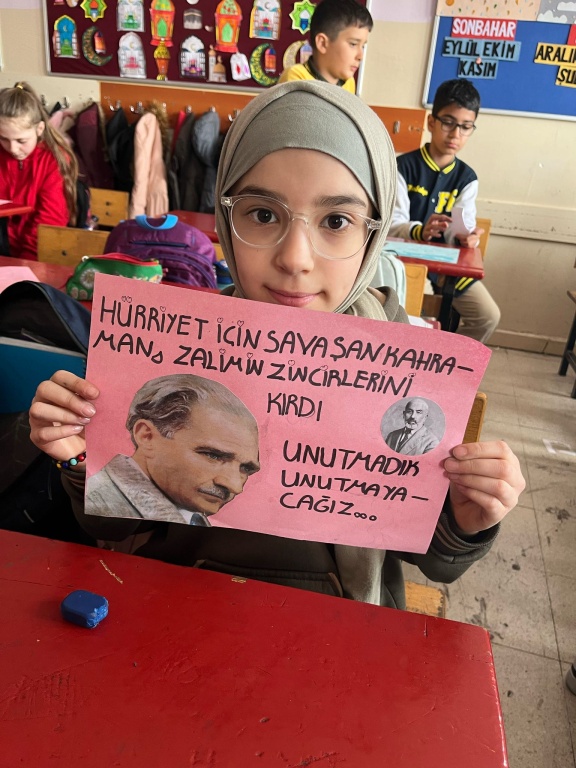 SONBAHAR
EYLÜL EKİM
KASIM
ARALI
SU
HÜRRİYET İCİN SAVAŞAN KAHRA-
MAN, ZALİMİN ZİNCİRLERİNİ
KIRDI
UNUTMADIK
UNUTMAYA-
CAĞIZ...